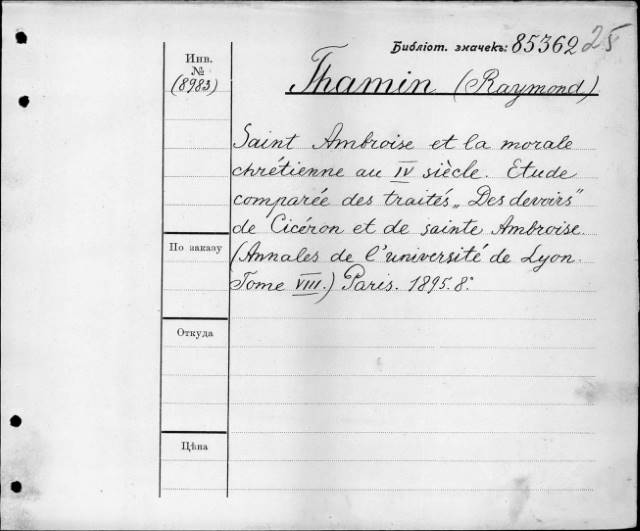 Библіот. значекъ: 85362 25
Инв.
№
(8983)
Thamin (Raymond)
Saint Ambroise et la morale
chrétienne au IV siècle. Etude
comparée des traités „Des devoirs"
de Cicéron et de sainte Ambroise.
(Annales de l'université de Lyon.
Tome VIII.) Paris. 1895. 8°
По заказу
Откуда
Цѣна